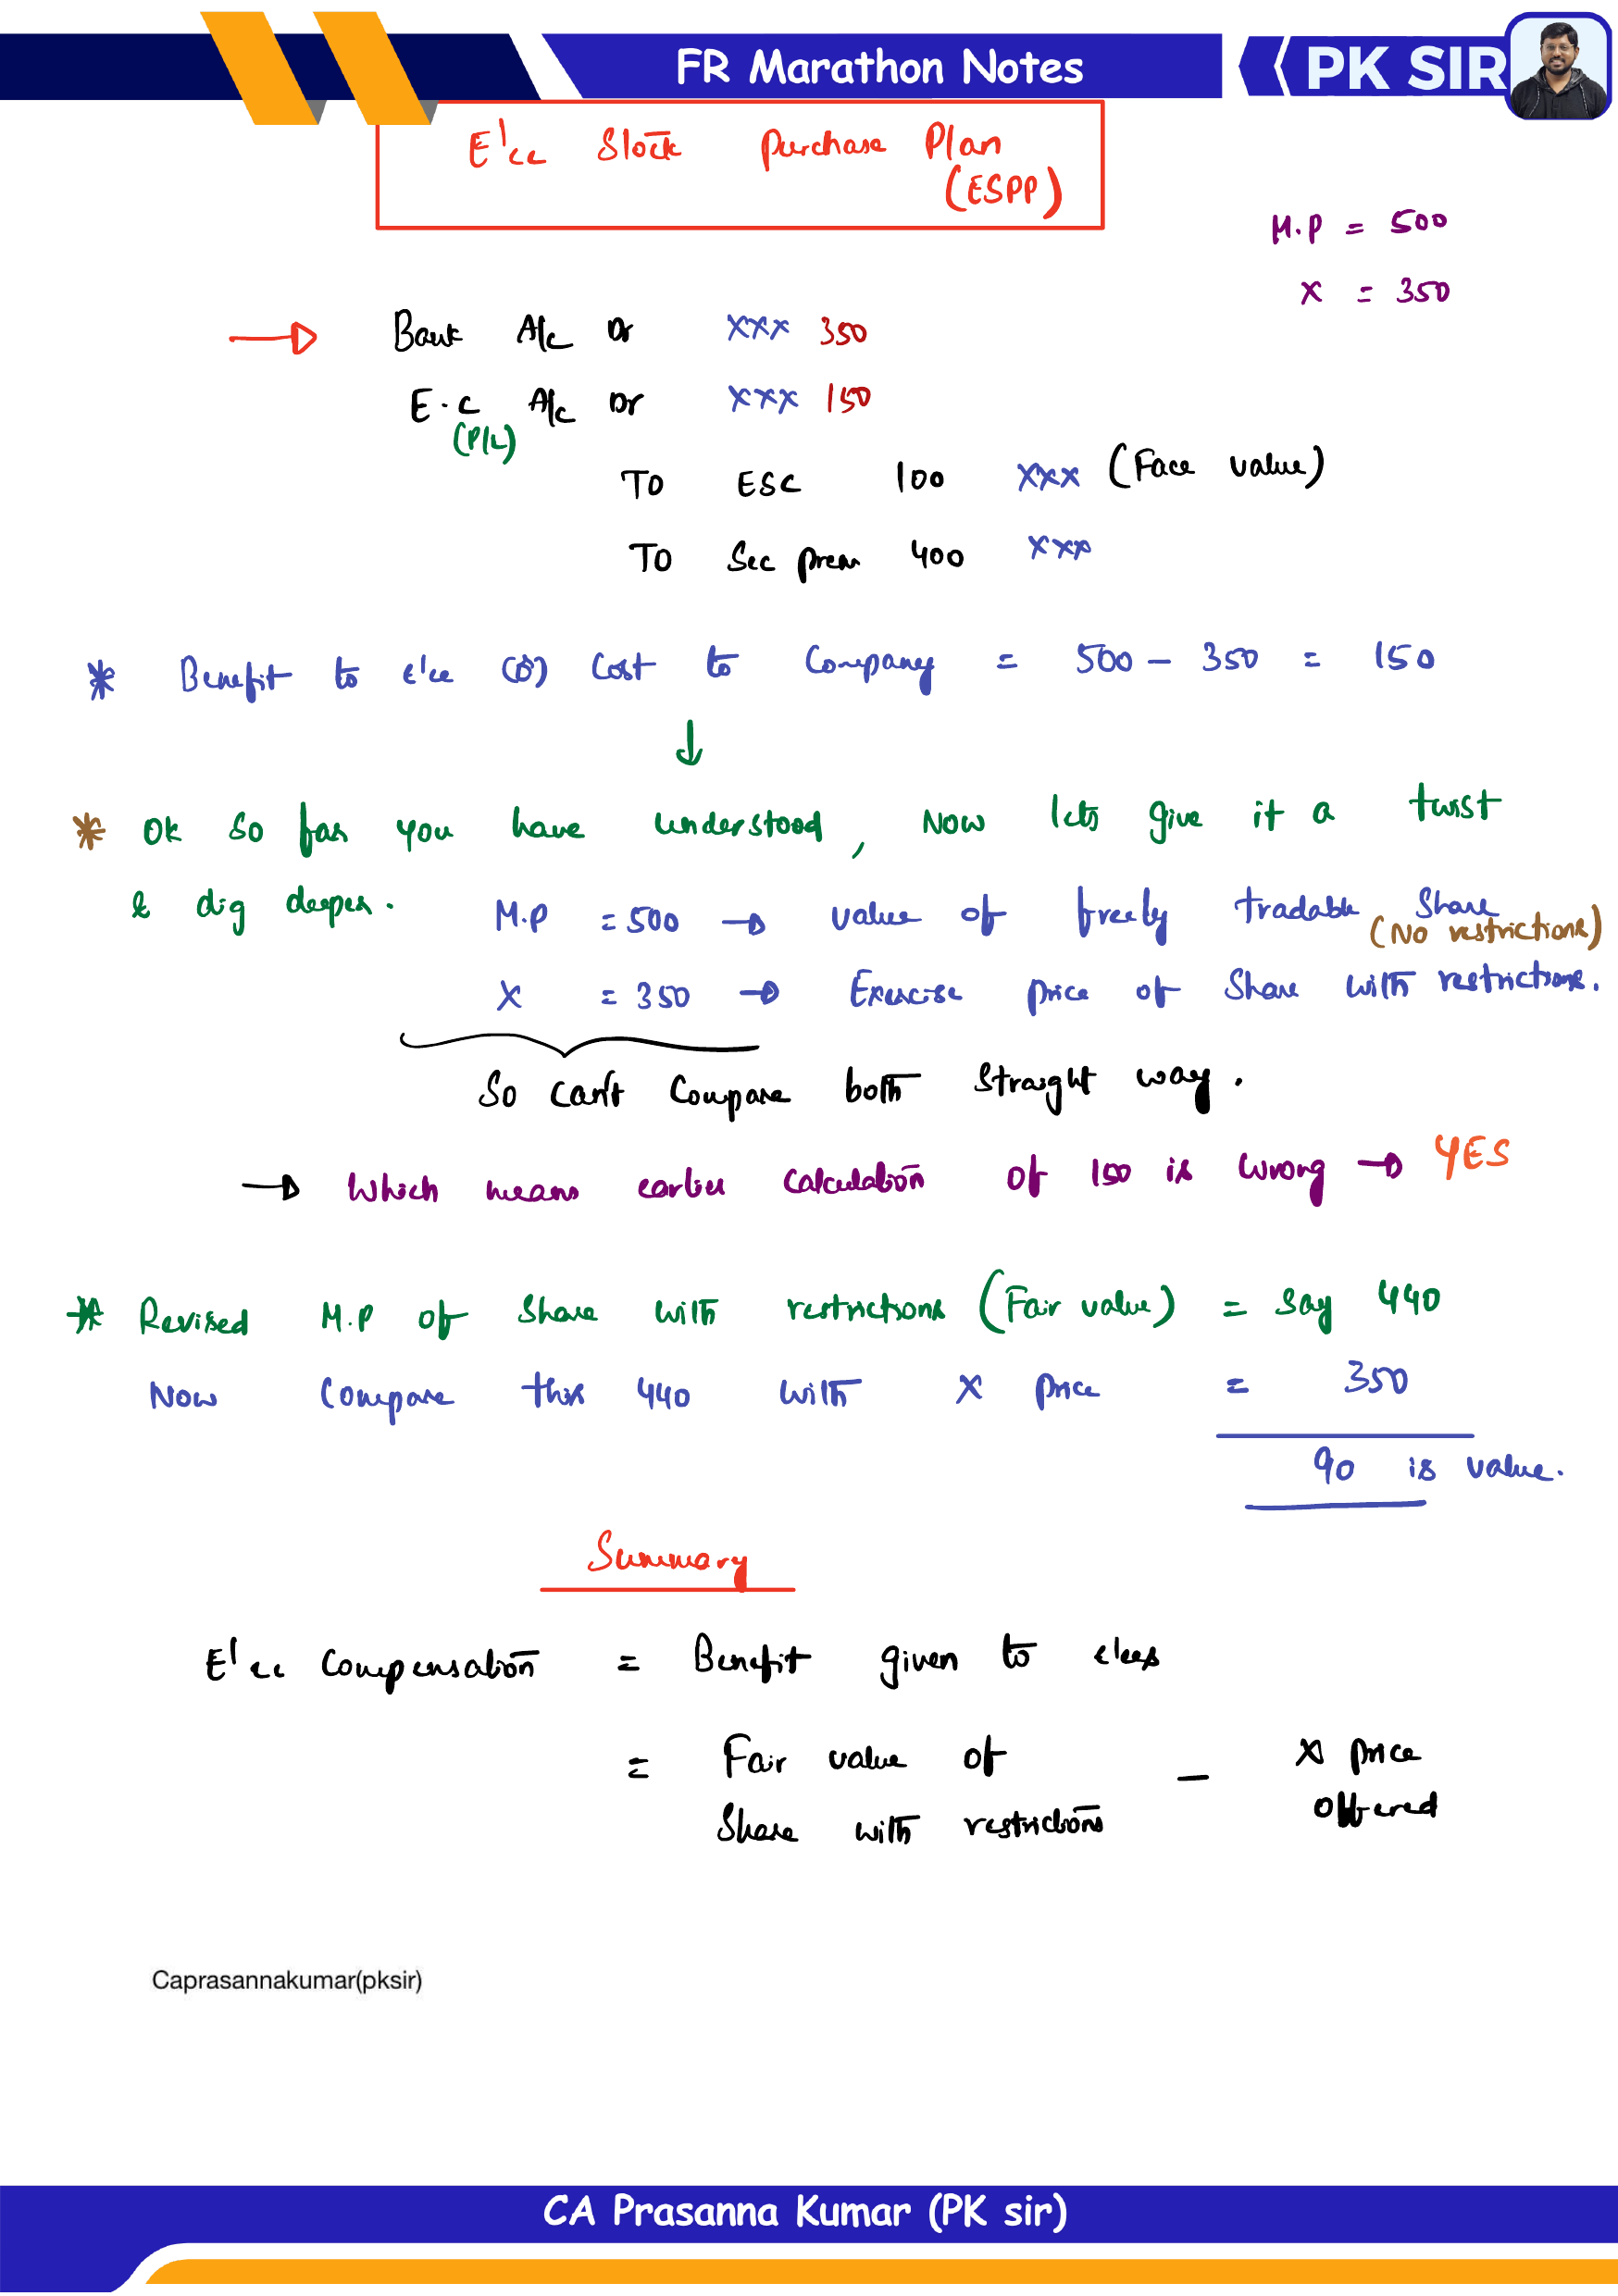 FR Marathon Notes
PK SIR
E'ee Stock Purchase Plan
(ESPP)
M.P = 500
X = 350
Bank A/c Dr xxx 350
E.C A/c Dr xxx 150
(P/L)
TO ESC 100 xxx (Face value)
TO Sec prem 400 xxx
* Benefit to e'ee (or) Cost to Company = 500 - 350 = 150
* Ok so far you have understood, Now lets give it a twist
& dig deeper.
M.P = 500 → value of freely tradable Share
(No restrictions)
X = 350 → Exercise price of Share with restrictions.
So can't Compare both straight way.
→ Which means earlier calculation of 150 is wrong → YES
* Revised M.P of Share with restrictions (Fair value) = Say 440
Now Compare this 440 with X price = 350
90 is value.
Summary
E'ee Compensation = Benefit given to e'ees
= Fair value of - X price
Share with restrictions offered
Caprasannakumar(pksir)
CA Prasanna Kumar (PK sir)